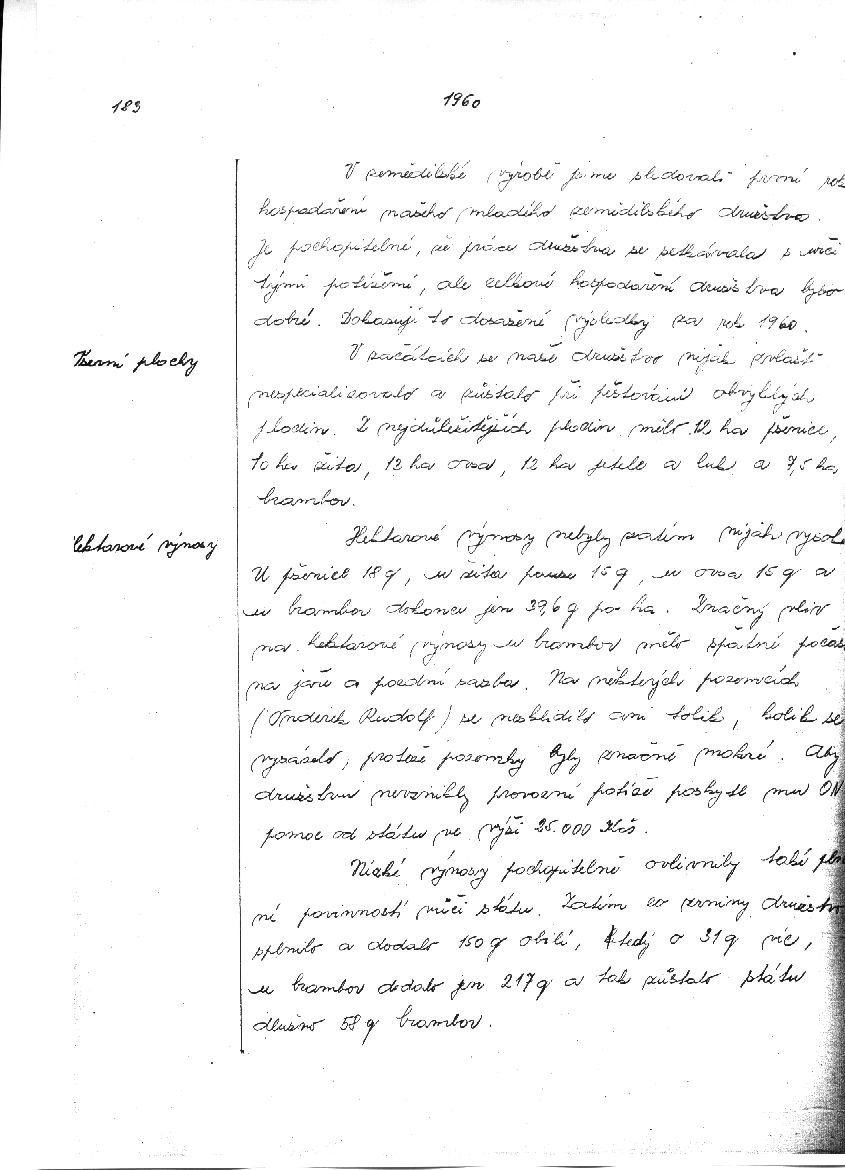 183
1960
V zemědělské výrobě jsme sledovali první rok
hospodaření našeho mladého zemědělského družstva.
Je pochopitelné, že práce družstva se setkávala s urči
tými potížemi, ale celkové hospodaření družstva bylo
dobré. Dokazují to dosažené výsledky za rok 1960.
Osevní plochy
V začátcích se naše družstvo nijak zvlášť
nespecializovalo a zůstalo při pěstování obvyklých
plodin. Z nejdůležitějších plodin mělo 12 ha pšenice,
10 ha žita, 12 ha ovsa, 12 ha jetele a luk a 7,5 ha
brambor.
Hektarové výnosy
Hektarové výnosy nebyly zatím nijak vysoké
U pšenice 18 q, u žita pouze 15 q, u ovsa 15 q a
u brambor dokonce jen 39,6 q po ha. Značný vliv
na hektarové výnosy u brambor mělo špatné počas
na jaře a pozdní sazba. Na některých pozemcích
(Onderek Rudolf) se nesklidilo ani tolik, kolik se
vysázelo, protože pozemky byly značně mokré. Aby
družstvu nevznikly provozní potíže poskytl mu ON
pomoc od státu ve výši 25.000 Kčs.
Nízké výnosy pochopitelně ovlivnily také pln
ní povinností vůči státu. Zatím co zrniny družstvo
splnilo a dodalo 150 q obilí, tedy o 31 q víc,
u brambor dodalo jen 217 q a tak zůstalo státu
dlužno 58 q brambor.